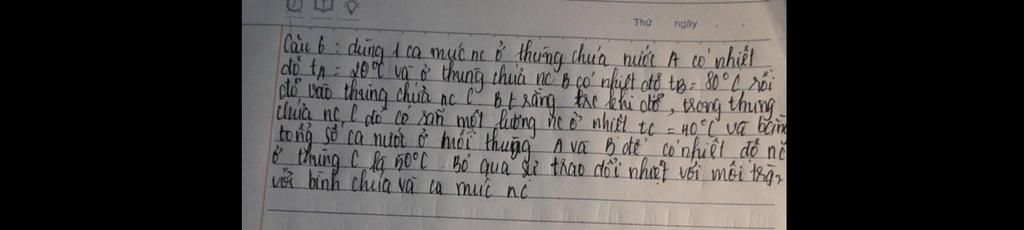 Thứ ngày
Câu 6 : dùng 1 ca múc nc ở thùng chứa nước A có nhiệt
độ tA = 20°C và ở thùng chứa nc B có nhiệt độ tB = 80°C rồi
đổ vào thùng chứa nc C. Bt rằng trc khi đổ, trong thùng
chứa nc C đã có sẵn một lượng nc ở nhiệt tC = 40°C và bằng
tổng số ca nước ở mỗi thùng A và B để có nhiệt độ nc
ở thùng C là 50°C. Bỏ qua sự trao đổi nhiệt với môi trg,
với bình chứa và ca múc nc